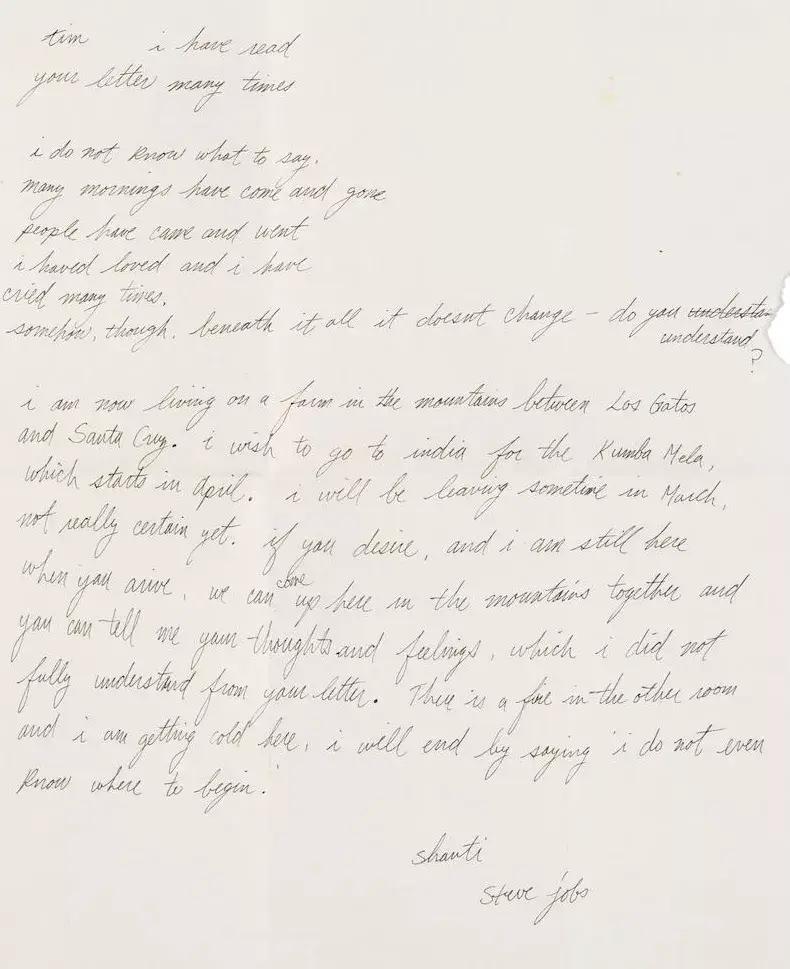 tim i have read
your letter many times
i do not know what to say.
many mornings have come and gone
people have came and went
i haved loved and i have
cried many times.
somehow, though, beneath it all it doesnt change - do you understan
understand
?
i am now living on a farm in the mountains between Los Gatos
and Santa Cruz. i wish to go to india for the Kumba Mela,
which starts in April. i will be leaving sometime in March,
not really certain yet. if you desire, and i am still here
when you arive, we can come up here in the mountains together and
you can tell me your thoughts and feelings, which i did not
fully understand from your letter. There is a fire in the other room
and i am getting cold here, i will end by saying 'i do not even
know where to begin.'
shanti
steve jobs